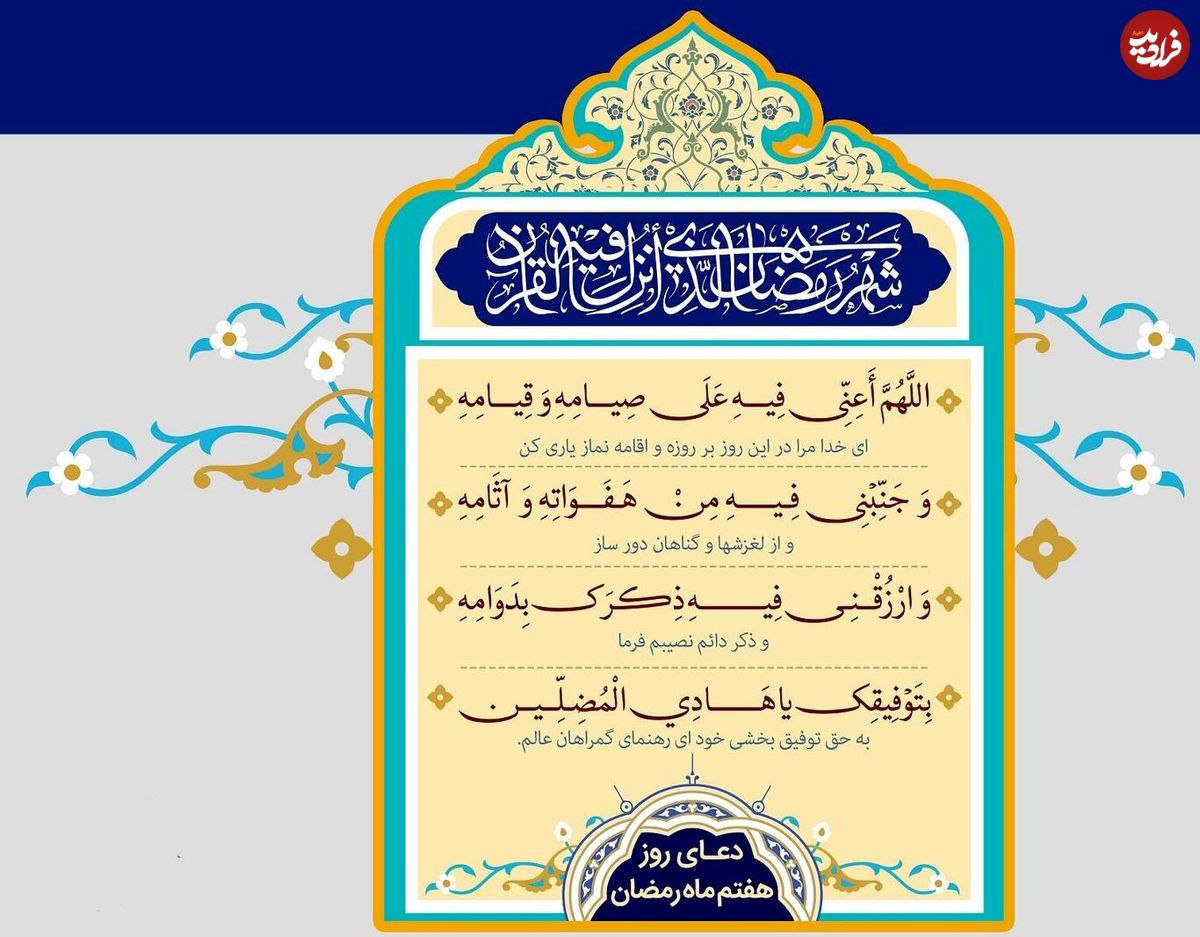 فرادید
شَهْرُ رَمَضَانَ الَّذِي أُنْزِلَ فِيهِ الْقُرْآنُ
اللَّهُمَّ أَعِنِّی فِیهِ عَلَی صِیامِهِ وَ قِیامِهِ
ای خدا مرا در این روز بر روزه و اقامه نماز یاری کن
وَ جَنِّبْنِی فِیهِ مِنْ هَفَوَاتِهِ وَ آثَامِهِ
و از لغزشها و گناهان دور ساز
وَ ارْزُقْنِی فِیهِ ذِکْرَکَ بِدَوَامِهِ
و ذکر دائم نصیبم فرما
بِتَوْفِیقِکَ یا هَادِي الْمُضِلِّینَ
به حق توفیق بخشی خود ای رهنمای گمراهان عالم.
دعای روز
هفتم ماه رمضان